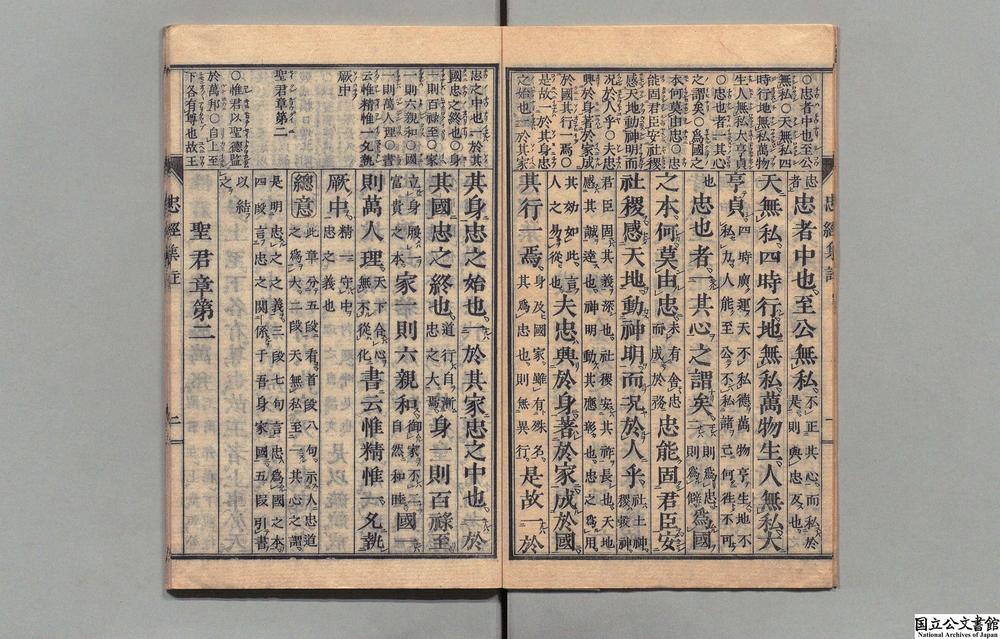 ○忠者中也至公
無私○天無私四
時行地無私萬物
生人無私大亨貞
○忠也者一其心
之謂矣○為國之
本何莫由忠○忠
能固君臣安社稷
感天地動神明而
況於人乎○夫忠
興於身著於家成
於國其行一焉○
是故一於其身忠
之始也一於其家
忠經集註
忠者忠者中也至公無私不正其心而私於是則與忠反也
天無私四時行地無私萬物生人無私大
亨貞四時廣運天不私德萬物亨生地不私力人能至公不私諸己何往不可
也忠也者一其心之謂矣則為忠則為僻為國
之本何莫由忠未有舍忠而成於務忠能固君臣安
社稷感天地動神明而況於人乎社土神稷穀神
君臣固其義深也社稷安其祚長也天地感其誠達也神明動其應彰也忠之為用
其効如此言人之易從也夫忠興於身著於家成於國
其行一焉身及國家雖有殊名其為忠也則無異行是故一於
忠之中也一於其
國忠之終也○身
一則百祿至○家
一則六親和○國
一則萬人理○書
云惟精惟一允執
厥中
聖君章第二
○惟君以聖德監
於萬邦○自上至
下各有尊也故王
其身忠之始也一於其家忠之中也一於
其國忠之終也道行自漸忠之大焉身一則百祿至
立身履一富貴之本家一則六親和御家不二自然和睦國一
則萬人理天下合心無不從化書云惟精惟一允執
厥中精一守中忠之義也
總意此章分五段看首段八句示人忠道之為大二段天無私至一其心之謂
是明忠之之義三段七句言忠為國之本四段言忠之關係子吾身家國五段引書
以結之
聖君章第二
忠經集註
二
国立公文書館
National Archives of Japan